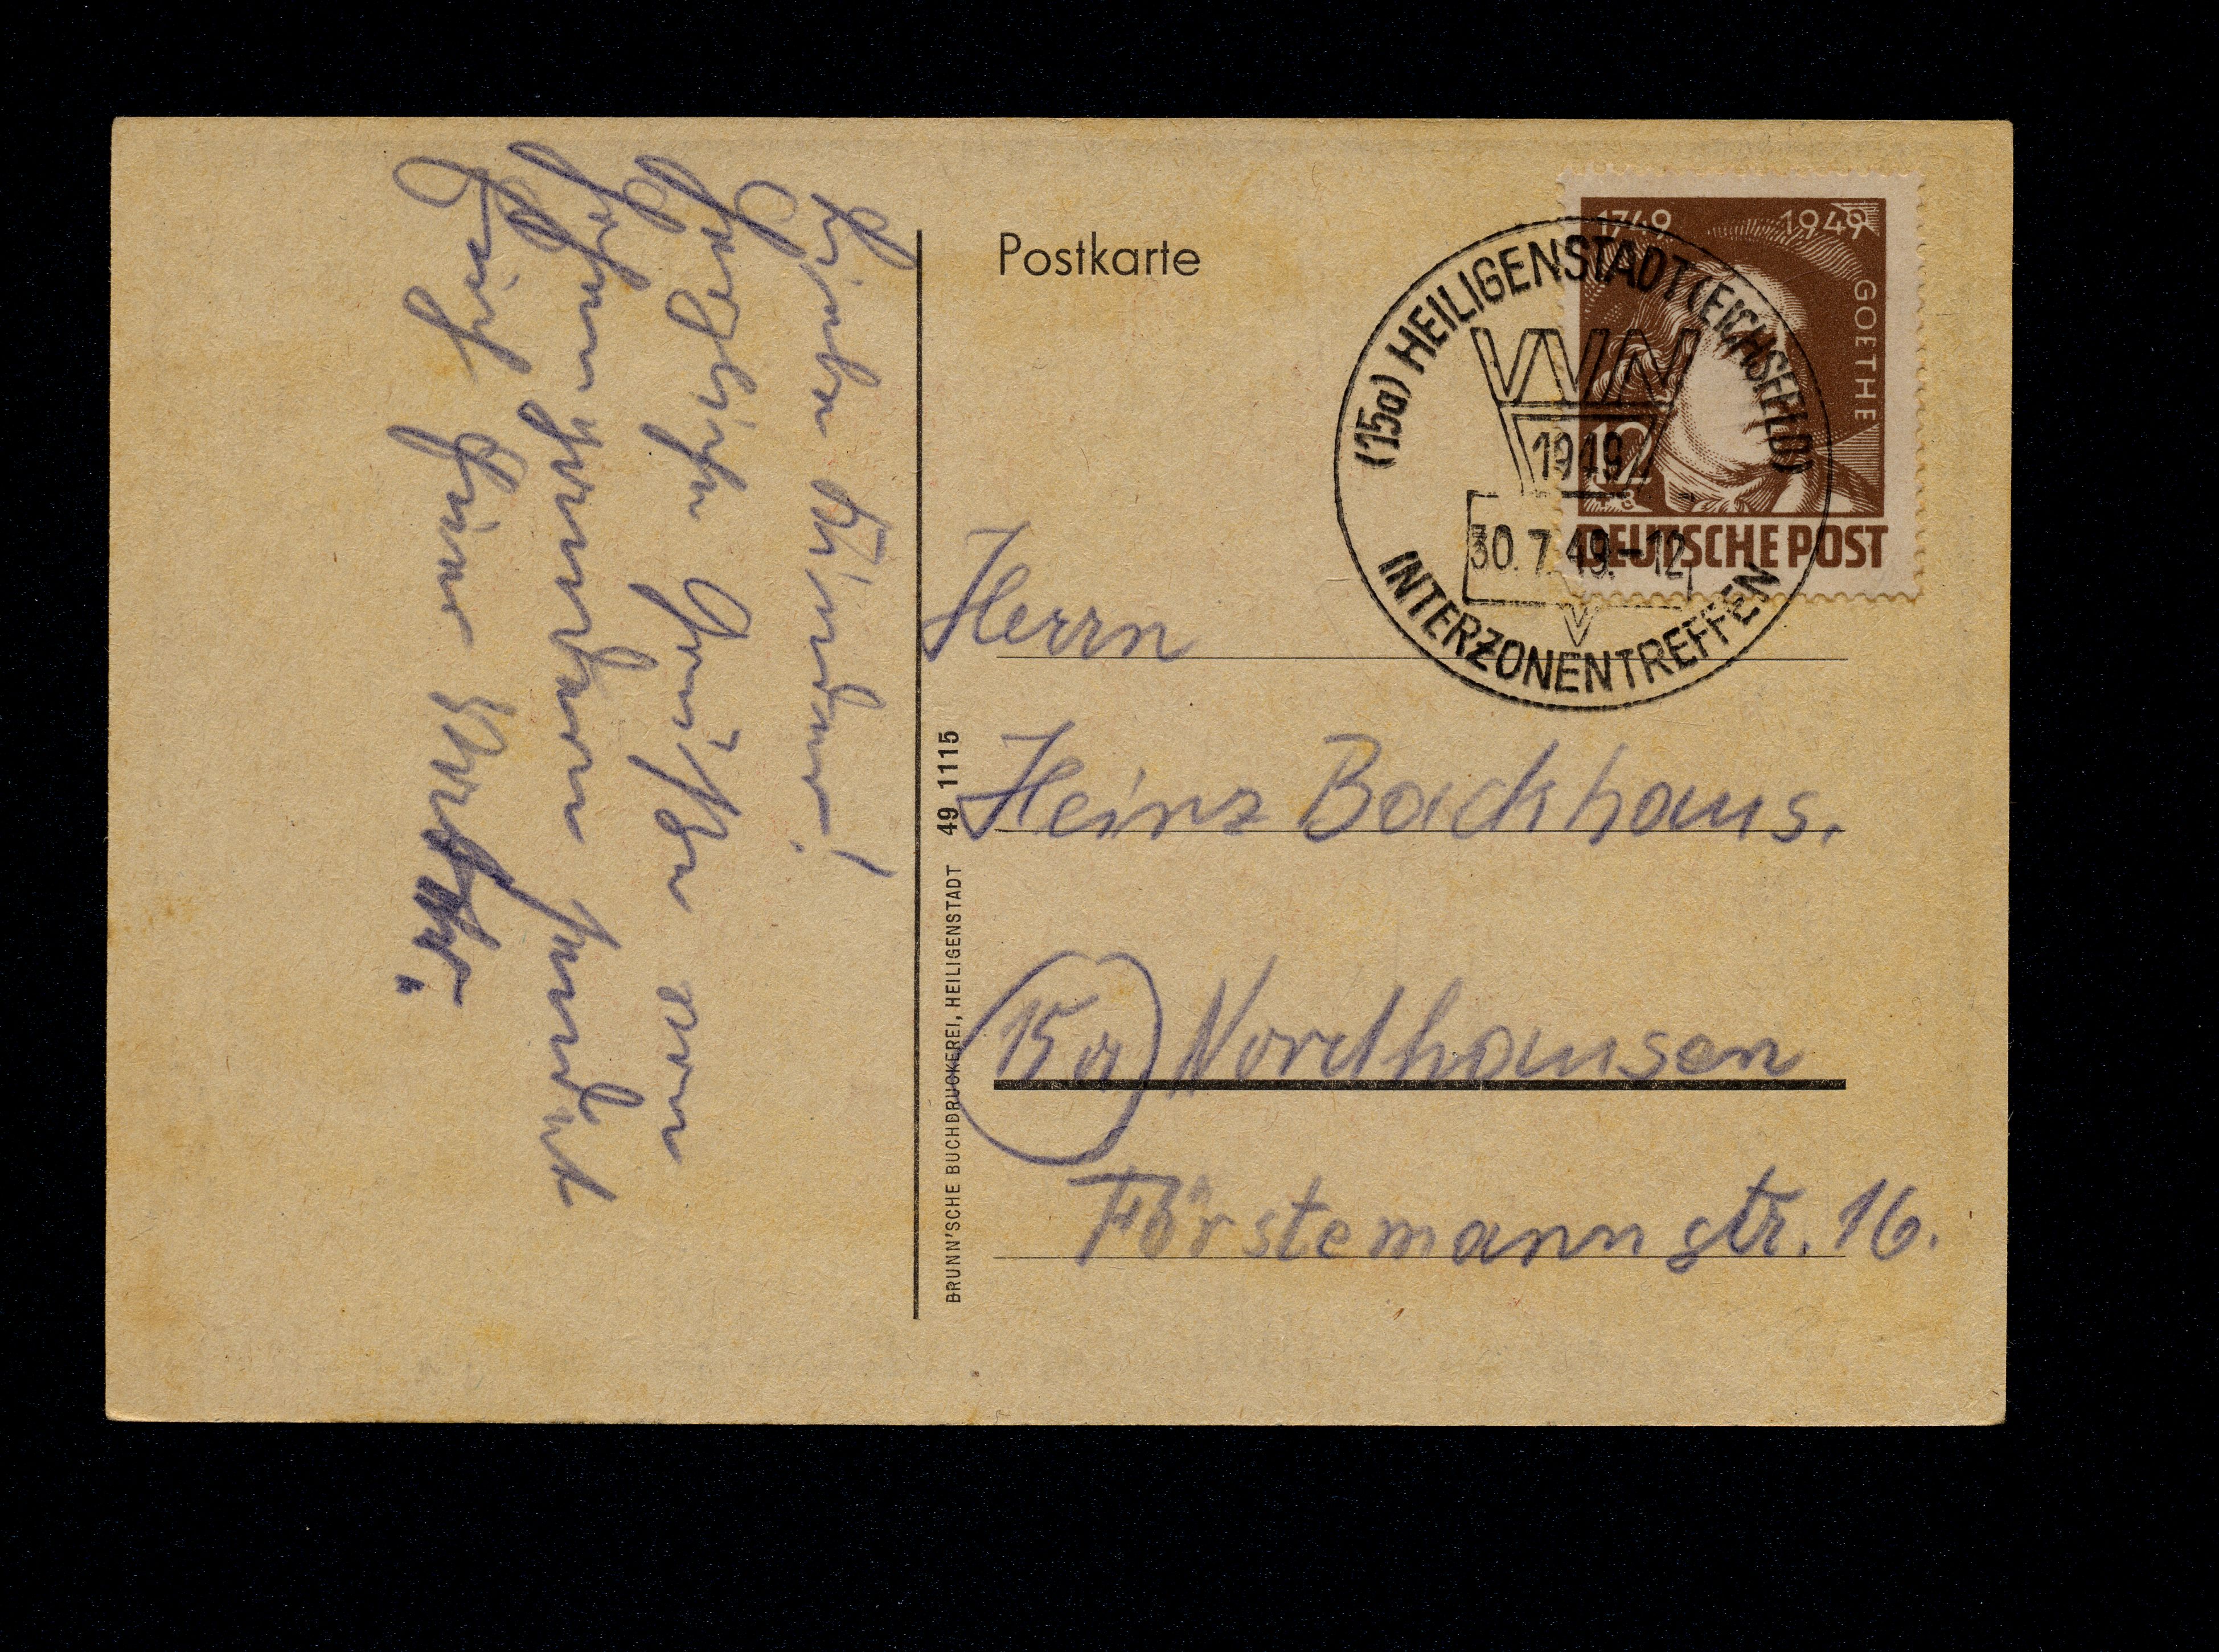 Postkarte
1749 1949
GOETHE
12
DEUTSCHE POST
(15a) HEILIGENSTADT (EICHSFELD)
VVN
1949
30.7.49.-12
INTERZONENTREFFEN
Herrn
Heinz Backhaus.
15a Nordhausen
Förstemannstr. 16.
BRUNN'SCHE BUCHDRUCKEREI, HEILIGENSTADT 49 1115
Lieber
Herzlichen Grüße von
sendet
Dich Deine